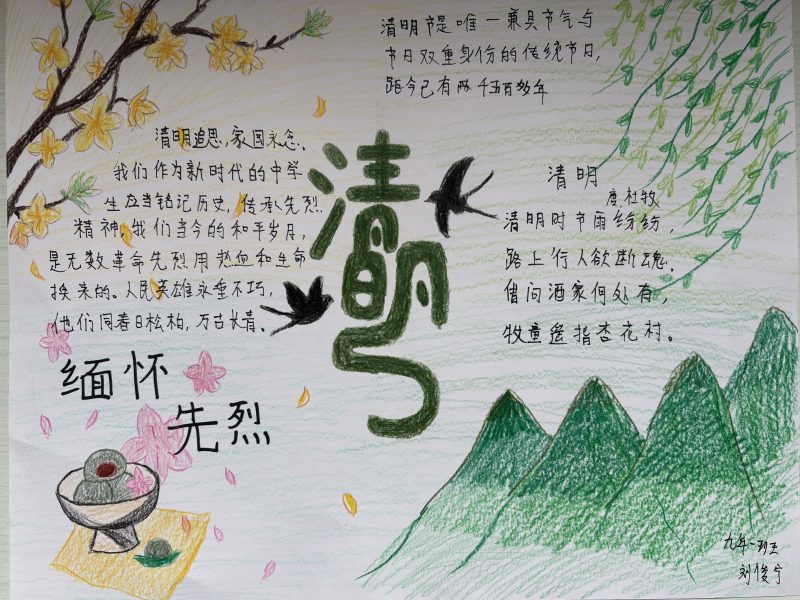 清明节是唯一兼具节气与
节日双重身份的传统节日,
距今已有两千五百多年
清明追思,家国永念。
我们作为新时代的中学
生应当铭记历史,传承先烈
精神,我们当今的和平岁月,
是无数革命先烈用热血和生命
换来的。人民英雄永垂不朽,
他们同春日松柏,万古长青。
清明
清明
唐 杜牧
清明时节雨纷纷,
路上行人欲断魂。
借问酒家何处有,
牧童遥指杏花村。
缅怀
先烈
九年一班
刘俊宁